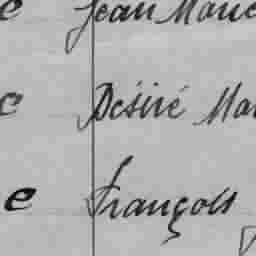 e Jean Marie
e Désiré Mar
e François